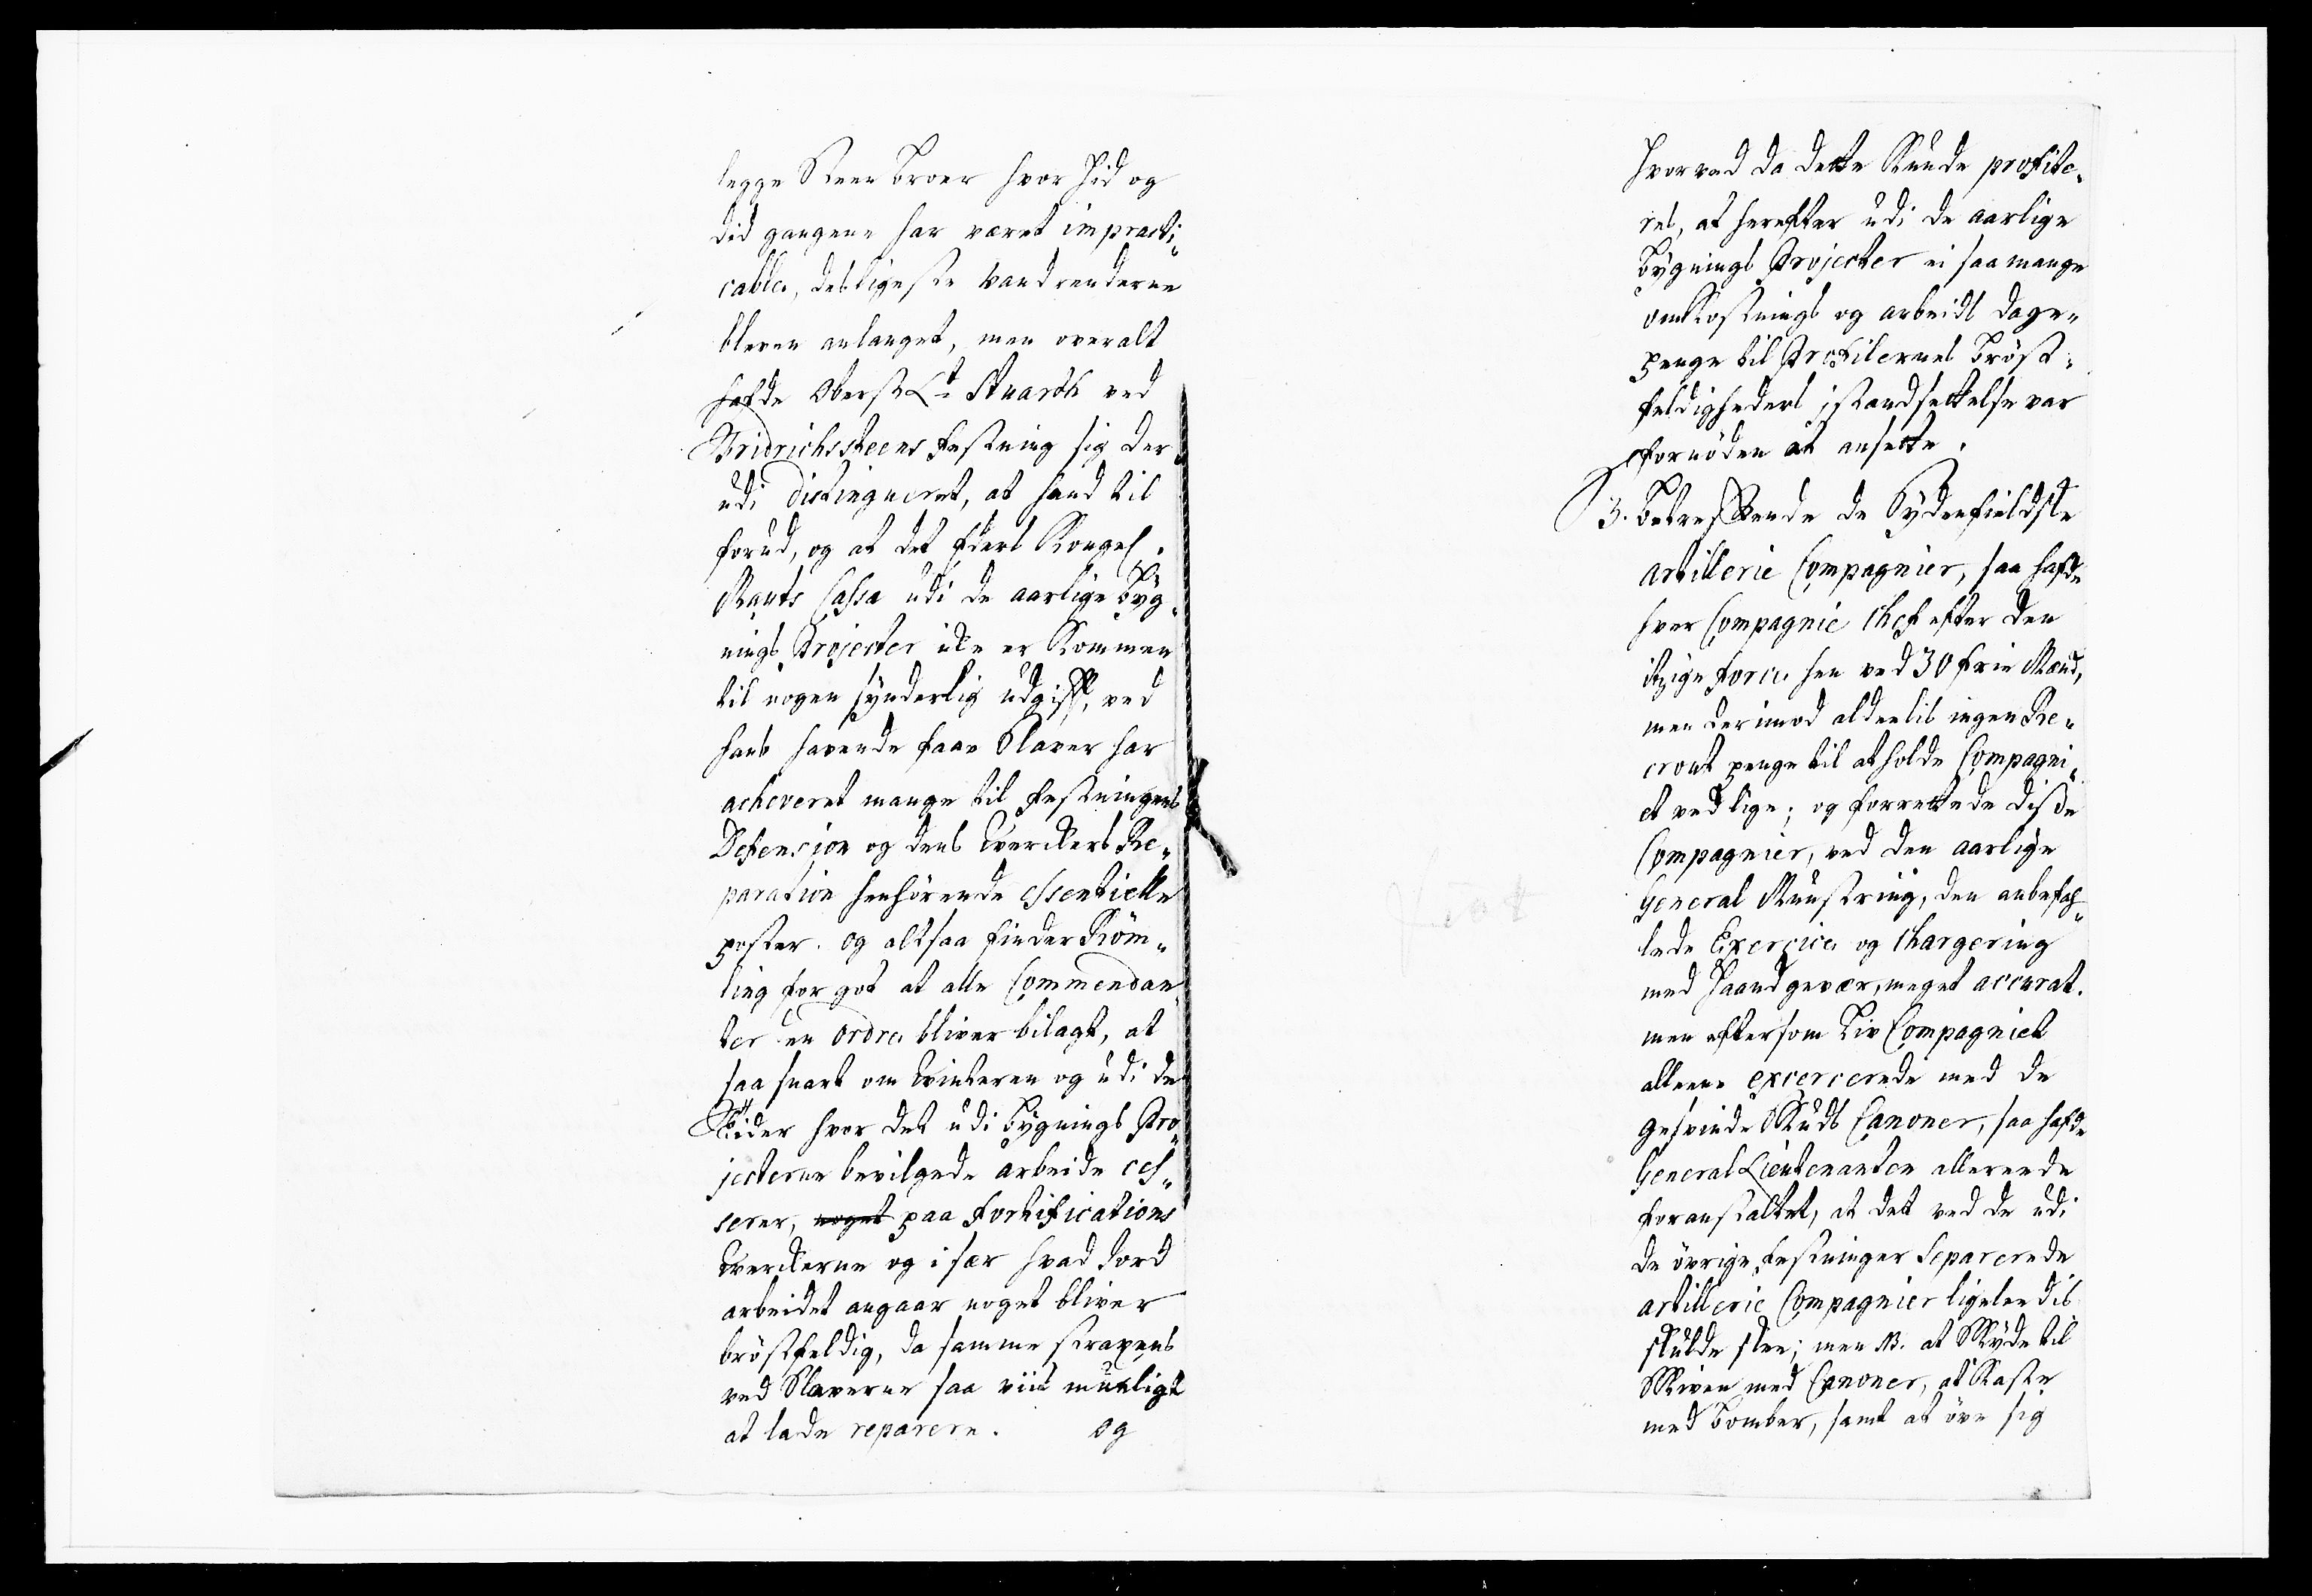 legge Steen broer hvor hid og
did gangene har været impracti„
cable, desligeste vandrenderne
bleven anlanget, men overalt
hafde Oberst Lt Stuarth ved
Fridrichssteens Festning sig der
udi distingveret, at hand til
forud, og at det Eders Kongel.
Mayts Cassa udi de aarlige Byg„
nings Projecter icke er kommen
til nogen synderlig udgift, ved
hans havende faae Slaver har
acheveret mange til Festningens
Defension og dens Werckers Re„
paration henhörende essentielle
poster. og altsaa finder Röm„
ling for got at alle Commendan„
ter en ordre bliver bilagt, at
saa snart om Vinteren og udi de
Tider hvor det udi Bygnings Pro„
jecterne bevilgede arbeide ces„
serer, noget paa Fortifications
Werckerne og i sær hvad Jord
arbeidet angaar noget bliver
bröstfeldig, da samme strapens
ved Slaverne saa viit mueligt
at lade reparere. og
hvorved da dette kunde profite„
res, at herefter udi de aarlige
Bygnings Projecter ei saa mange
omkostnings og arbeids dage„
penge til Profilernes Bröst„
feldigheders istandsettelse var
fornöden at ansette.
3. Betreffende de Sydenfieldste
Artillerie Compagnier, saa hafde
hver Compagnie Chef efter den
itzige Force hen ved 30 frie Mænd,
men derimod aldeelis ingen Re„
crout penge til at holde Compagni„
et ved lige; og forrettede disse
Compagnier, ved den aarlige
General Munstring, den anbefah„
lede Exercice og Chargering
med Haand gevær, meget accurat.
men eftersom Liv Compagniet
alleene excercerede med de
gesvinde Skuds Canoner, saa hafde
General Lieutenanten allereede
foranstaltet, at det ved de udi
de övrige Festninger Separerede
Artillerie Compagnier ligeleedis
skulde skee; men NB. at Skyde til
Skiven med Canoner, at kaste
med Bomber, samt at öve sig